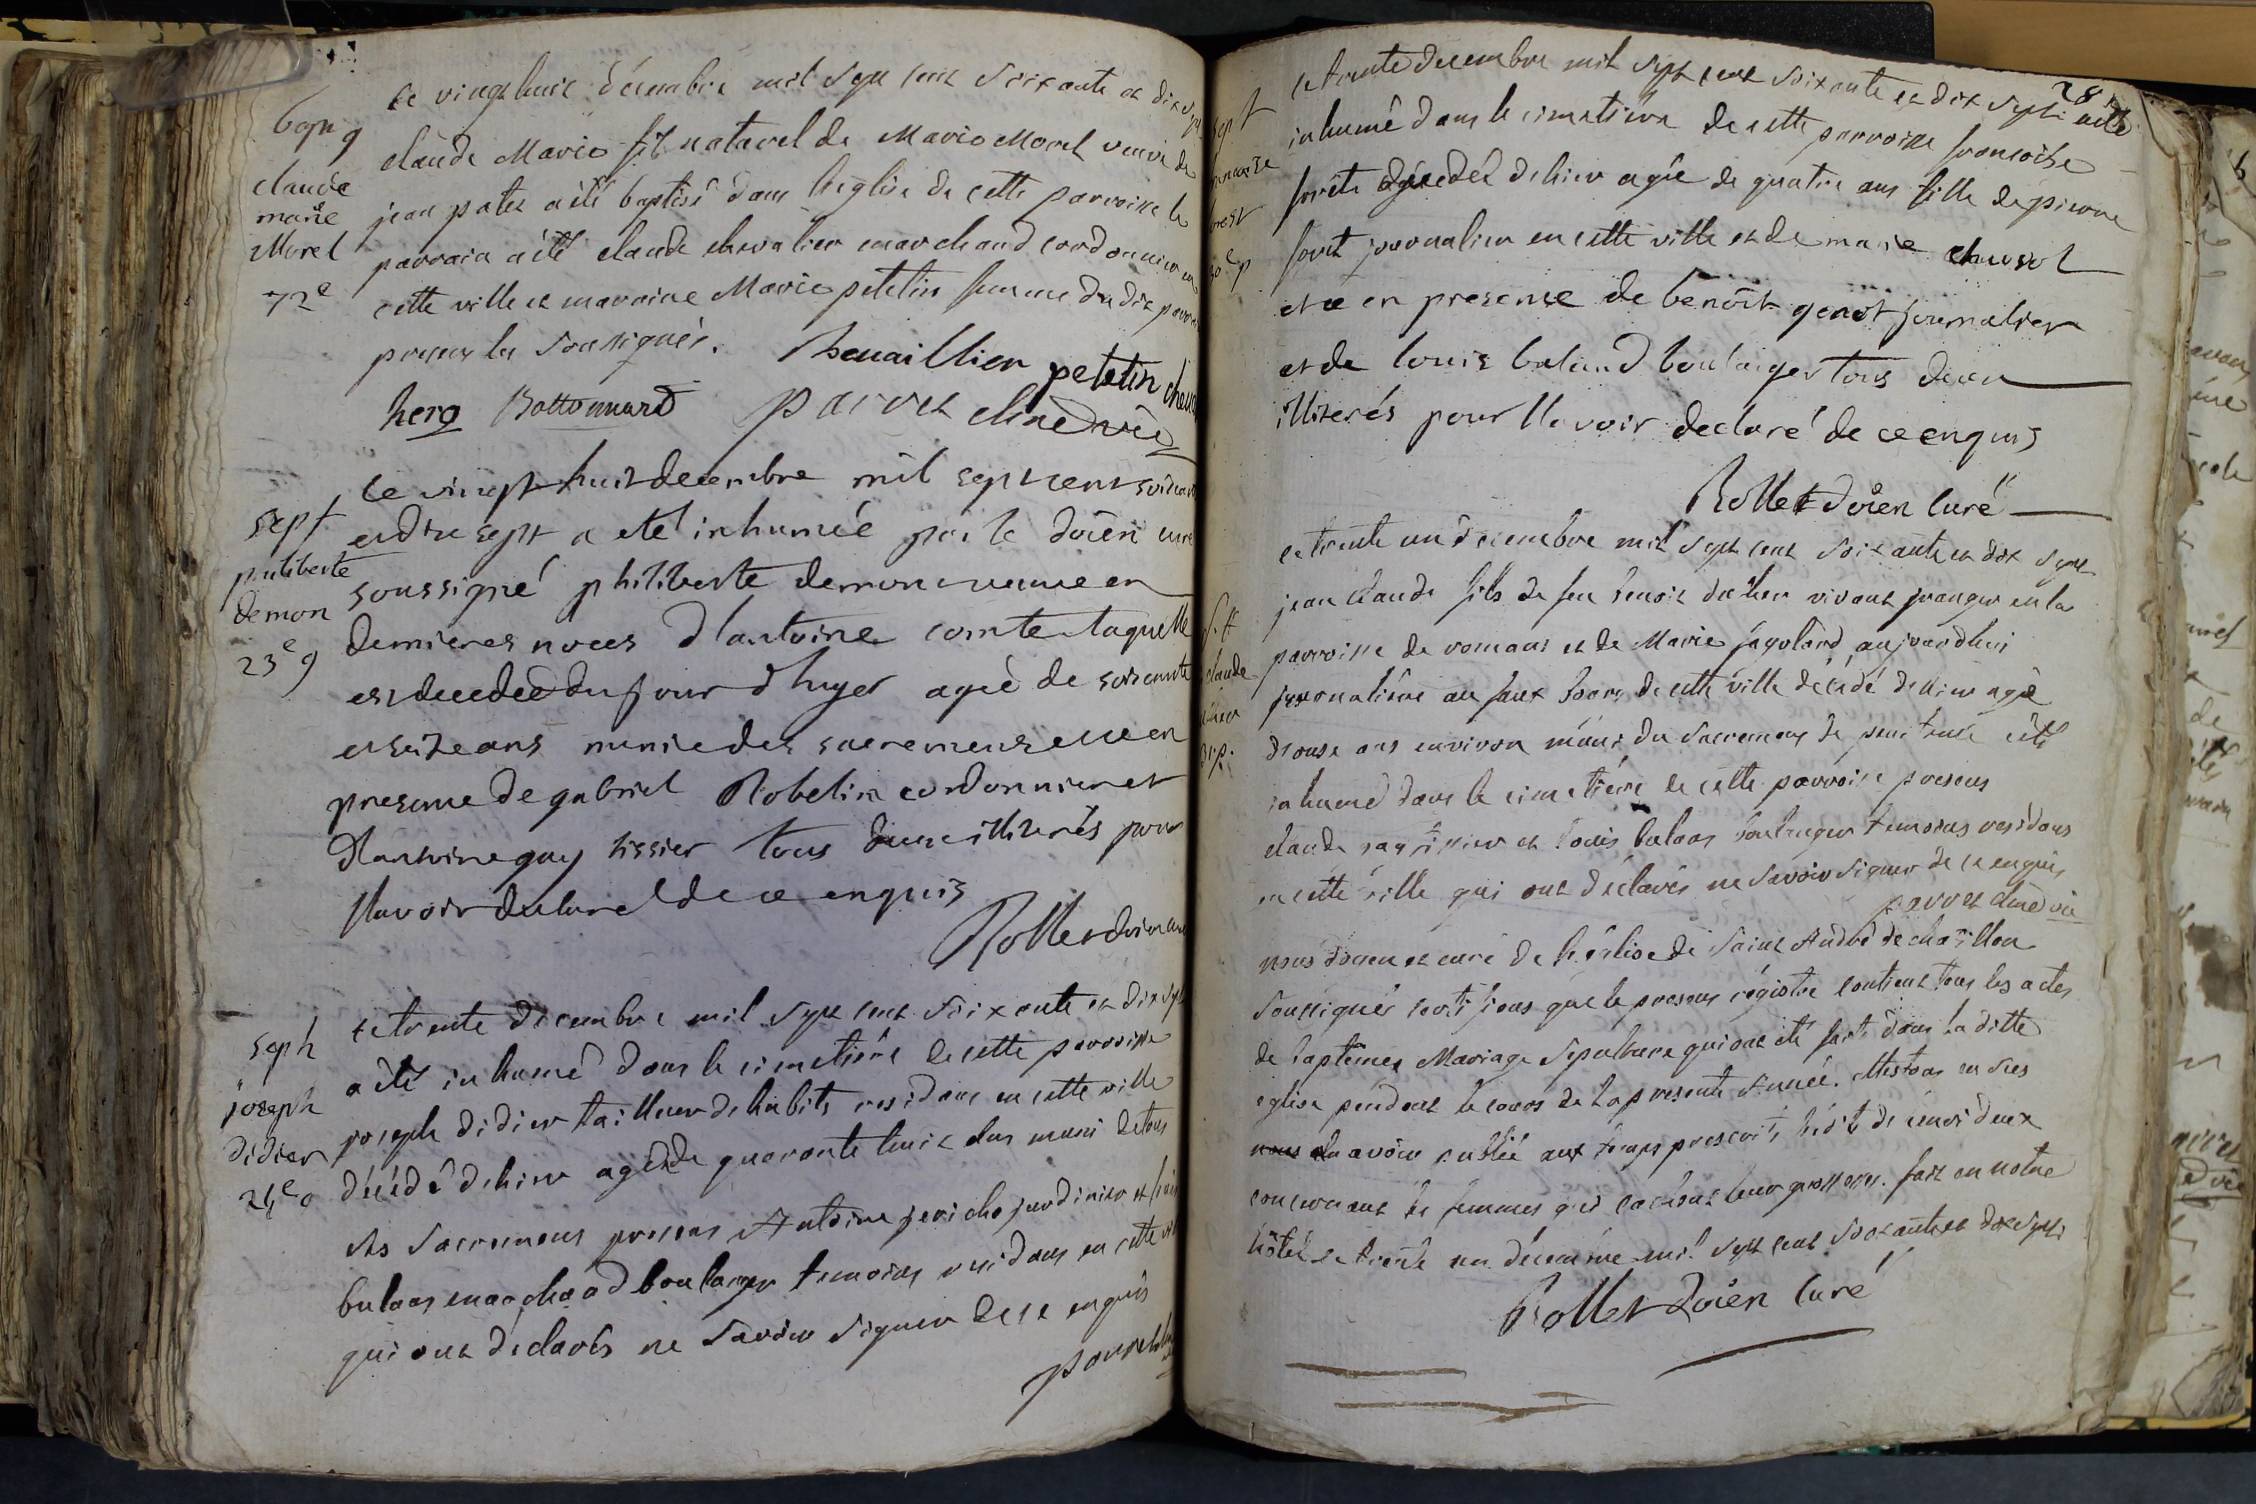 bap g
claude
marie
Morel
72e
Le vingt huit décembre mil sept cent soixante et dix sept
claude Marie fils naturel de Marie Morel veuve de
jean a été baptisé dans l'eglise de cette parroisse le
parrain a été claude chevalier marchand cordonnier en
cette ville et maraine Marie petetin femme du dit parrain
presens les soussignés. petetin
Bottonnard parvet
sept
philiberte
demon
23e g
Le vingt huit decembre mil sept cent soixante
et dix sept a eté inhumée par le doïen curé
soussigné philiberte demon veuve en
dernieres noces d'antoine comte laquelle
est decedeé du jour d'hyer ageé de soixante
et seize ans munie des sacremens et ce en
presence de gabriel Robelin cordonnier et
d'antoine guy tissier tous deux illiterés pour
l'avoir declaré de ce enquis
Rollet doïen curé
seph
joseph
didier
24e g
Le trente decembre mil sept cent soixante et dix sept
a été inhumé dans le cimetiére de cette parroisse
joseph didier tailleur d'habits residant en cette ville
décédé d'hier agé de quarante huit ans muni de tous
les sacremens presens Antoine jardinier et
bulaas marchand boulanger temoins residans en cette ville
qui ont déclarés ne savoir signer de ce enquis
parvet
28
sept
Le trente decembre mil sept cent soixante et dix sept a été
inhumé dans le cimetiére de cette parroisse francoise
foréte décedeé d'hier agée de quatre ans fille de pierre
foret journalier en cette ville et de marie
et ce en presence de benoît genot journalier
et de louis boulanger tous deux
illiterés pour l'avoir declaré de ce enquis
Rollet doïen curé
claude
Le trente un décembre mil sept cent soixante et dix sept
jean claude fils de feu benoit vivant granger en la
parroisse de romans et de Marie aujourdhui
journaliére au faux bourg de cette ville décédé d'hier agé
d'onse ans environ muni du sacrement de penitence a été
inhumé dans le cimetiére de cette parroisse presens
claude et louis bulaas boulanger temoins residans
en cette ville qui ont déclarés ne savoir signer de ce enquis
parvet
nous doïen et curé de l'église de Saint André de chatillon
soussigné certifions que le present régistre contient tous les actes
de baptêmes Mariage Sepulture qui ont eté faits dans la ditte
eglise pendant le cours de la presente année. Attestons en sus
avoir publié aux tems prescrits l'édit de henri deux
concernant les femmes qui cachent leur grossesses. fait en notre
hôtel le trente un décembre mil sept cent soixante et dix sept
Rollet doïen curé